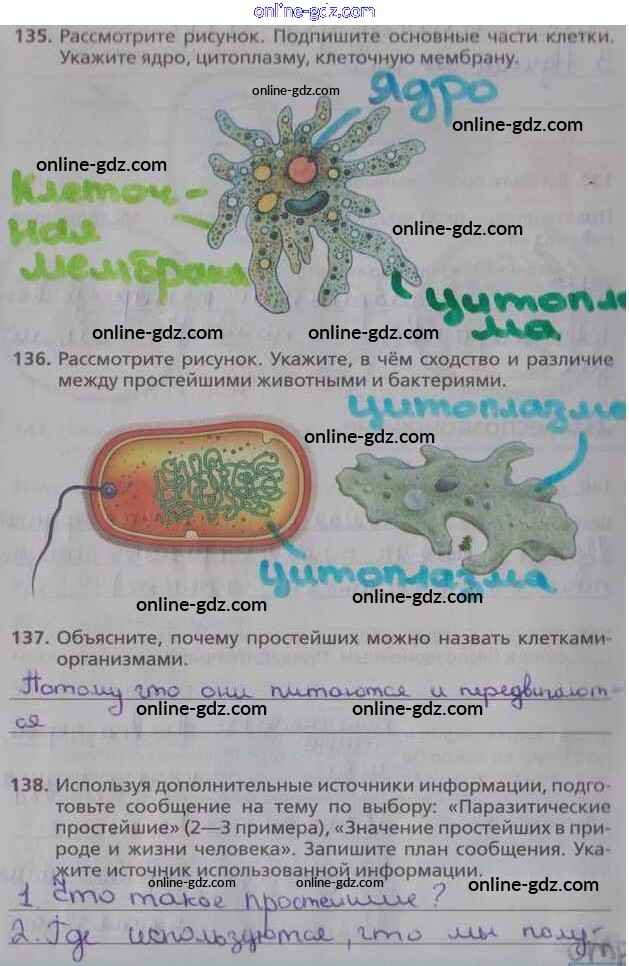 online-gdz.com
135. Рассмотрите рисунок. Подпишите основные части клетки.
Укажите ядро, цитоплазму, клеточную мембрану.
online-gdz.com
Ядро
online-gdz.com
online-gdz.com
Клеточ-
ная
мембрана
online-gdz.com
цитопла
ма
online-gdz.com
online-gdz.com
136. Рассмотрите рисунок. Укажите, в чём сходство и различие
между простейшими животными и бактериями.
цитоплазма
online-gdz.com
цитоплазма
online-gdz.com
online-gdz.com
137. Объясните, почему простейших можно назвать клетками-
организмами.
Потому что они питаются и передвигают-
ся
online-gdz.com
online-gdz.com
138. Используя дополнительные источники информации, подго-
товьте сообщение на тему по выбору: «Паразитические
простейшие» (2—3 примера), «Значение простейших в при-
роде и жизни человека». Запишите план сообщения. Ука-
жите источник использованной информации.
online-gdz.com
online-gdz.com
online-gdz.com
1. Что такое простейшие?
2. Где используются, что мы полу-